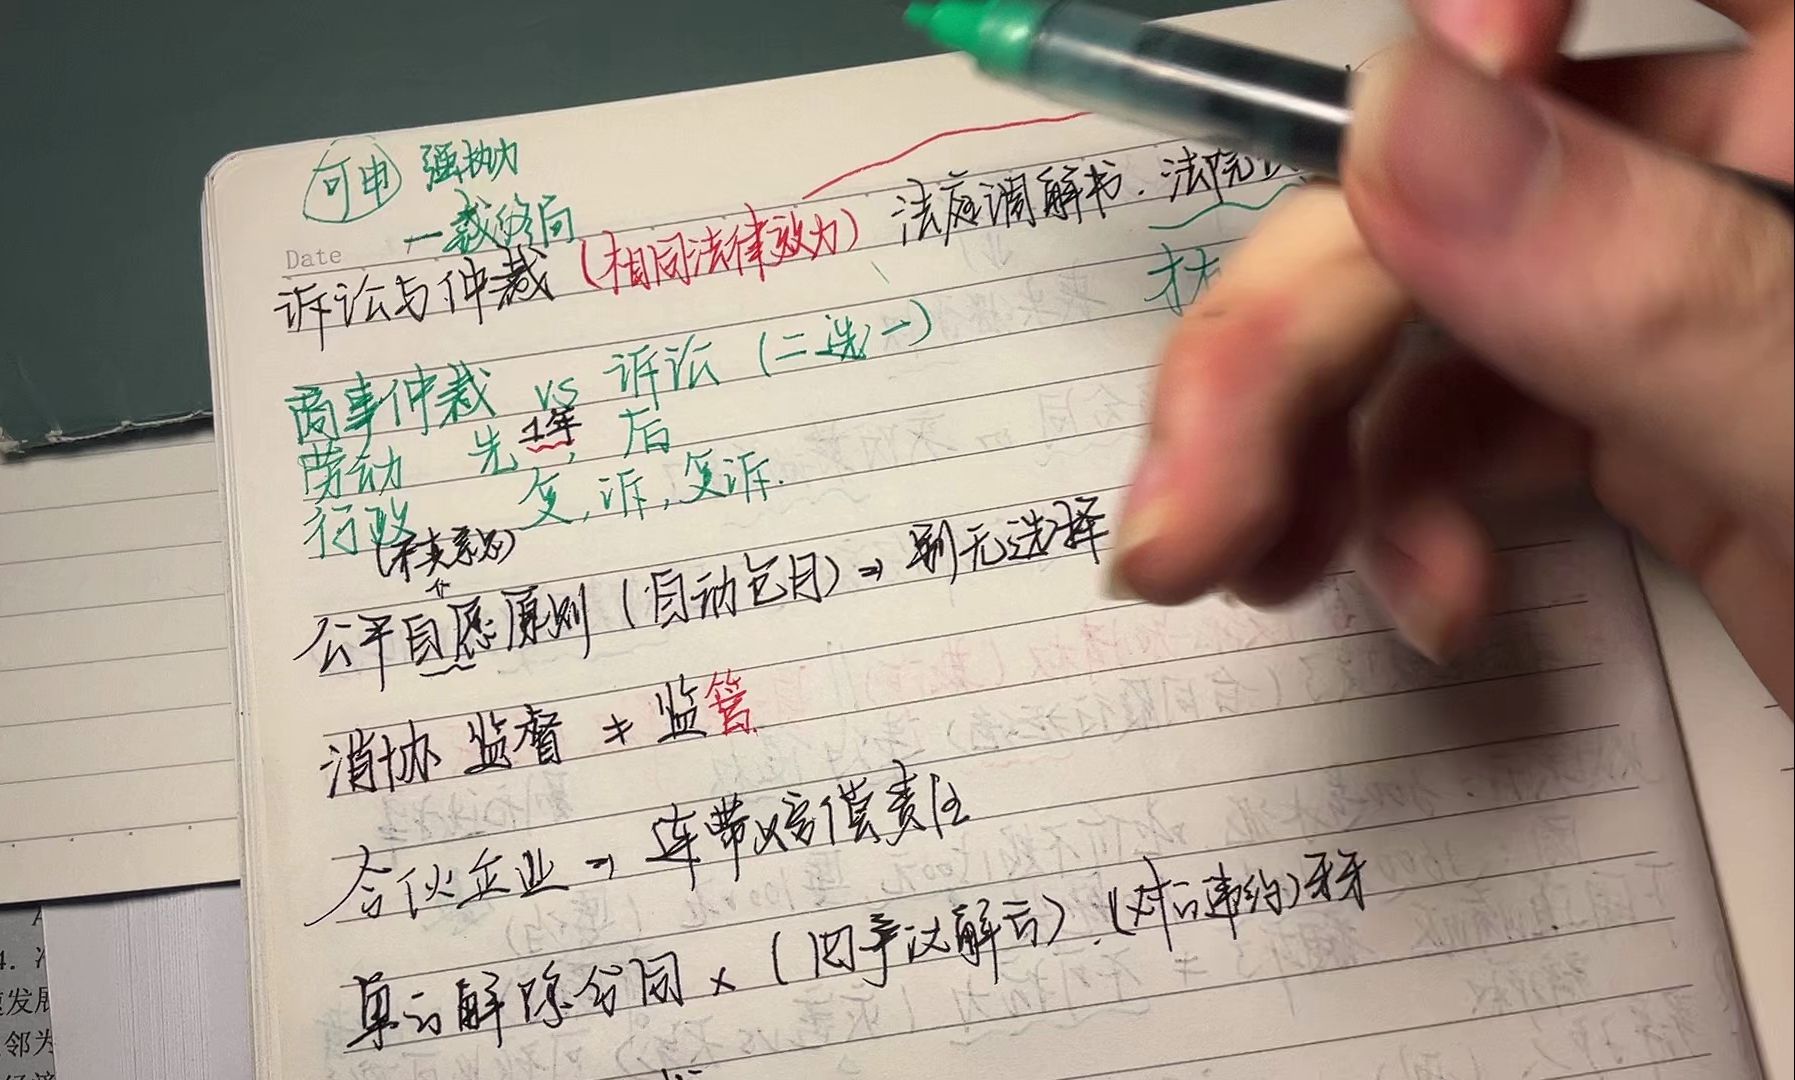 可申 强执力
一裁终局
Date
诉讼与仲裁（相同法律效力）法庭调解书. 法院
商事仲裁 vs 诉讼（二选一）
劳动 先 1年, 后
行政 复, 诉, 复诉.
公平自愿原则（自动包月）⇒ 别无选择
消协 监督 ≠ 监管
合伙企业 ⇒ 连带赔偿责任
单方解除合同 × （四季议解方）.（对方违约）
4.
发展
邻为